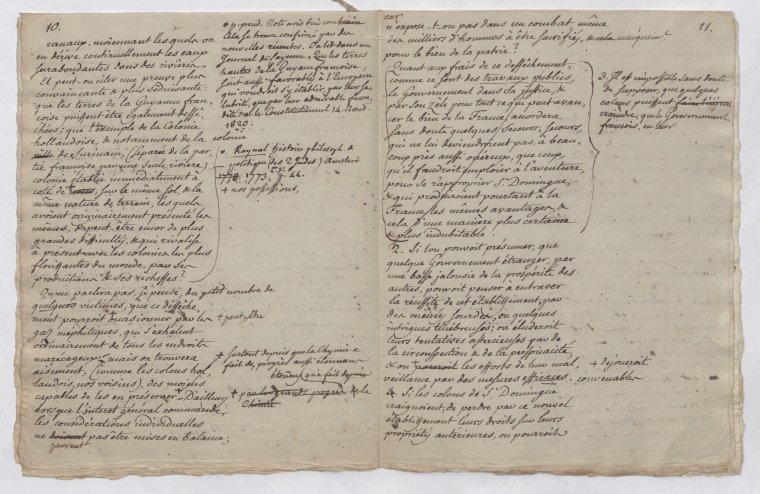 10.
canaux, moiennant les quels on
en dérive continuellement les eaux
surabondantes dans des rivières.
Et peut-on citer une preuve plus
convaincante & plus séduisante:
que les terres de la Guyane fran-
çoise puissent être également dessé-
chées; que l'exemple de la Colonie
hollandoise, & notamment de la
ville de Surinam, (séparée de la par-
tie françoise par une seule rivière)
colonie établie immédiatement à
coté de sur le même sol, de la
même nature de terrein, les quels
avoient originairement présenté les
mêmes, & peut être encor de plus
grandes difficultés, & qui rivalise
à présent avec les colonies les plus
florissantes du monde, par ses
productions & ses richesses?
On ne parlera pas, je pense, du petit nombre de
quelques victimes, que ce dessèche-
ment pourroit occasionner par les
gaz mephitiques, qui s'exhalent
ordinairement de tous les endroits
marécageux; mais on trouvera
aisément, (comme les colons hol-
landois, nos voisins) des moiens
capables de les en préserver. D'ailleurs
lorsque l'intéret général commande,
les considérations individuelles
ne peuvent pas être mises en balance;
* p. prend. Note avis bris contraire
cela se trouve confirmé par des
nouvelles récentes. On lit dans un
Journal de Cayenne, Que les terres
hautes de la Guyane françoise
sont aussi favorables à l'Européen
qui voudrois s'y établir, par leur sa-
lubrité, que par leur admirable fécon-
dité. Vid. le Constitutionnel 14. Aout.
1820.
colonie
v. Raynal Histoire philosoph. &
politique des 2 Indes) Amsterd
1773.
+ nos possessions,
+ peut être
+ surtout depuis que la Chymie a
fait des progrès aussi étonnans
+ par les grands progrès de la
Chimie
11.
car
n'expose-t-on pas dans un combat même
des milliers d'hommes à être sacrifiés, & cela uniquement
pour le bien de la patrie?
Quant aux frais de ce dessèchement,
comme ce sont des travaux publics,
le Gouvernement dans sa justice, &
par son zèle pour tout ce qui peut avan-
cer le bien de la France, accordera
sans doute quelques secours; secours,
qui ne lui deviendroient pas, à beau-
coup près aussi onéreux, que ceux
qu'il faudroit emploier à l'aventure,
pour se rapproprier St. Domingue,
& qui produiroient pourtant à la
France les mêmes avantages, &
cela d'une manière plus certaine
& plus indubitable.
2. Si l'on pouvoit présumer, que
quelque Gouvernement étranger, par
une basse jalousie de la prospérité des
autres, pouvoit penser à entraver
la réussite de cet établissement, par
des menées sourdes, ou quelques
intrigues ténébreuses; on éluderoit
leurs tentatives astucieuses par de
la circonspection & de la persévérance,
& on les efforts de leur mal-
veillance par des mesures efficaces.
4. Si les colons de St. Domingue
craignoient, de perdre par ce nouvel
établissement leurs droits sur leurs
propriétés antérieures, on pourroit
3. Il est impossible sans doute
de supposer, que quelques
colons puissent
craindre, que le Gouvernement
françois, en leur
+ déjoueroit
convenables